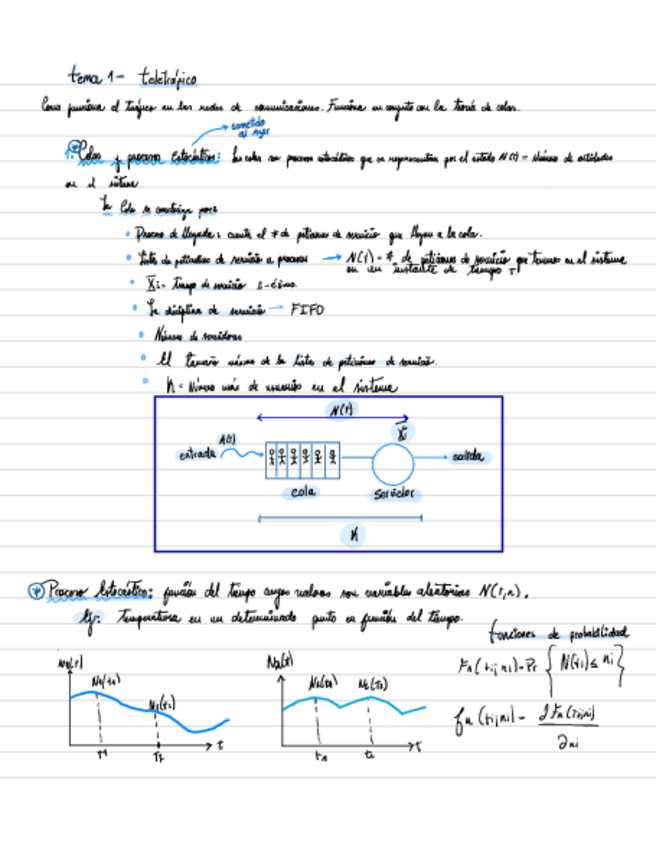 tema 1 - teletráfico
Como funciona el tráfico en las redes de comunicaciones. Funciona en conjunto con la teoría de colas.
sometido
al azar
Colas y procesos Estocásticos: Las colas son procesos estocásticos que se representan por el estado N(t) = Número de entidades
en el sistema
La Cola se construye por:
• Proceso de llegada: cuenta el # de peticiones de servicio que llegan a la cola.
• Lista de peticiones de servicio a procesar → N(t) = # de peticiones de servicio que tenemos en el sistema
en un instante de tiempo t
• X̅i = tiempo de servicio i-ésimo
• La disciplina de servicio → FIFO
• Número de servidores
• El tamaño máximo de la lista de peticiones de servicio.
• K = Número máx de usuarios en el sistema
N(t)
A(t)
X̅i
entrada
salida
cola
servidor
K
Proceso Estocástico: función del tiempo cuyos valores son variables aleatorias N(t,n).
Ej: Temperatura en un determinado punto en función del tiempo.
funciones de probabilidad
N1(t)
N1(t1)
N1(t2)
t1
t2
t
N2(t)
N2(t1)
N2(t2)
t1
t2
t
Fn(ti,ni) = Pr { N(ti) ≤ ni }
fn(ti,ni) = ∂Fn(ti,ni)
∂ni